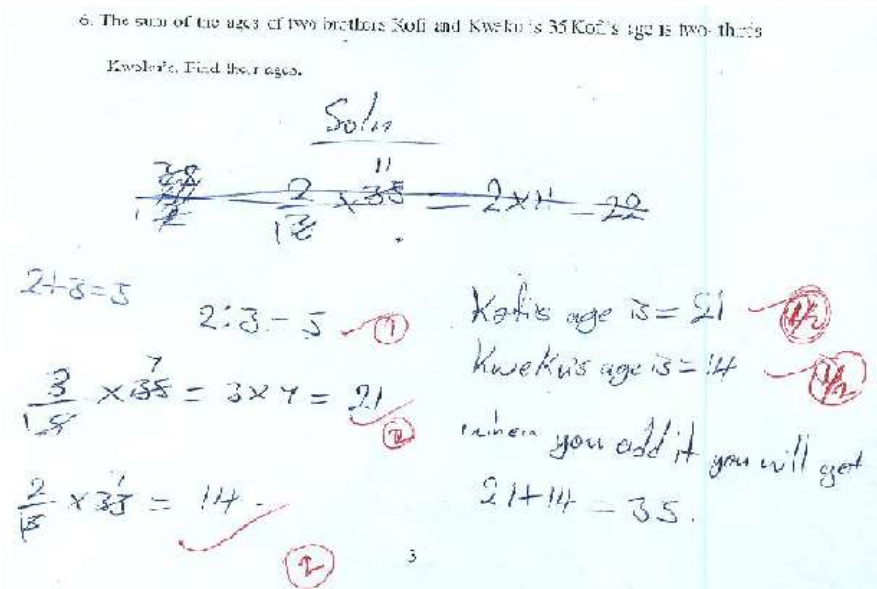 6. The sum of the ages of two brothers Kofi and Kweku is 35 Kofi's age is two-thirds
Kweku's. Find their ages.
Soln
2/13 × 35 = 2×11 = 22
2+3=5
2:3 = 5 1
3/5 × 35 = 3×7 = 21
2
2/5 × 35 = 14
2
Kofi's age is = 21 1/2
Kweku's age is = 14 1/2
when you add it you will get
21+14 = 35.
3